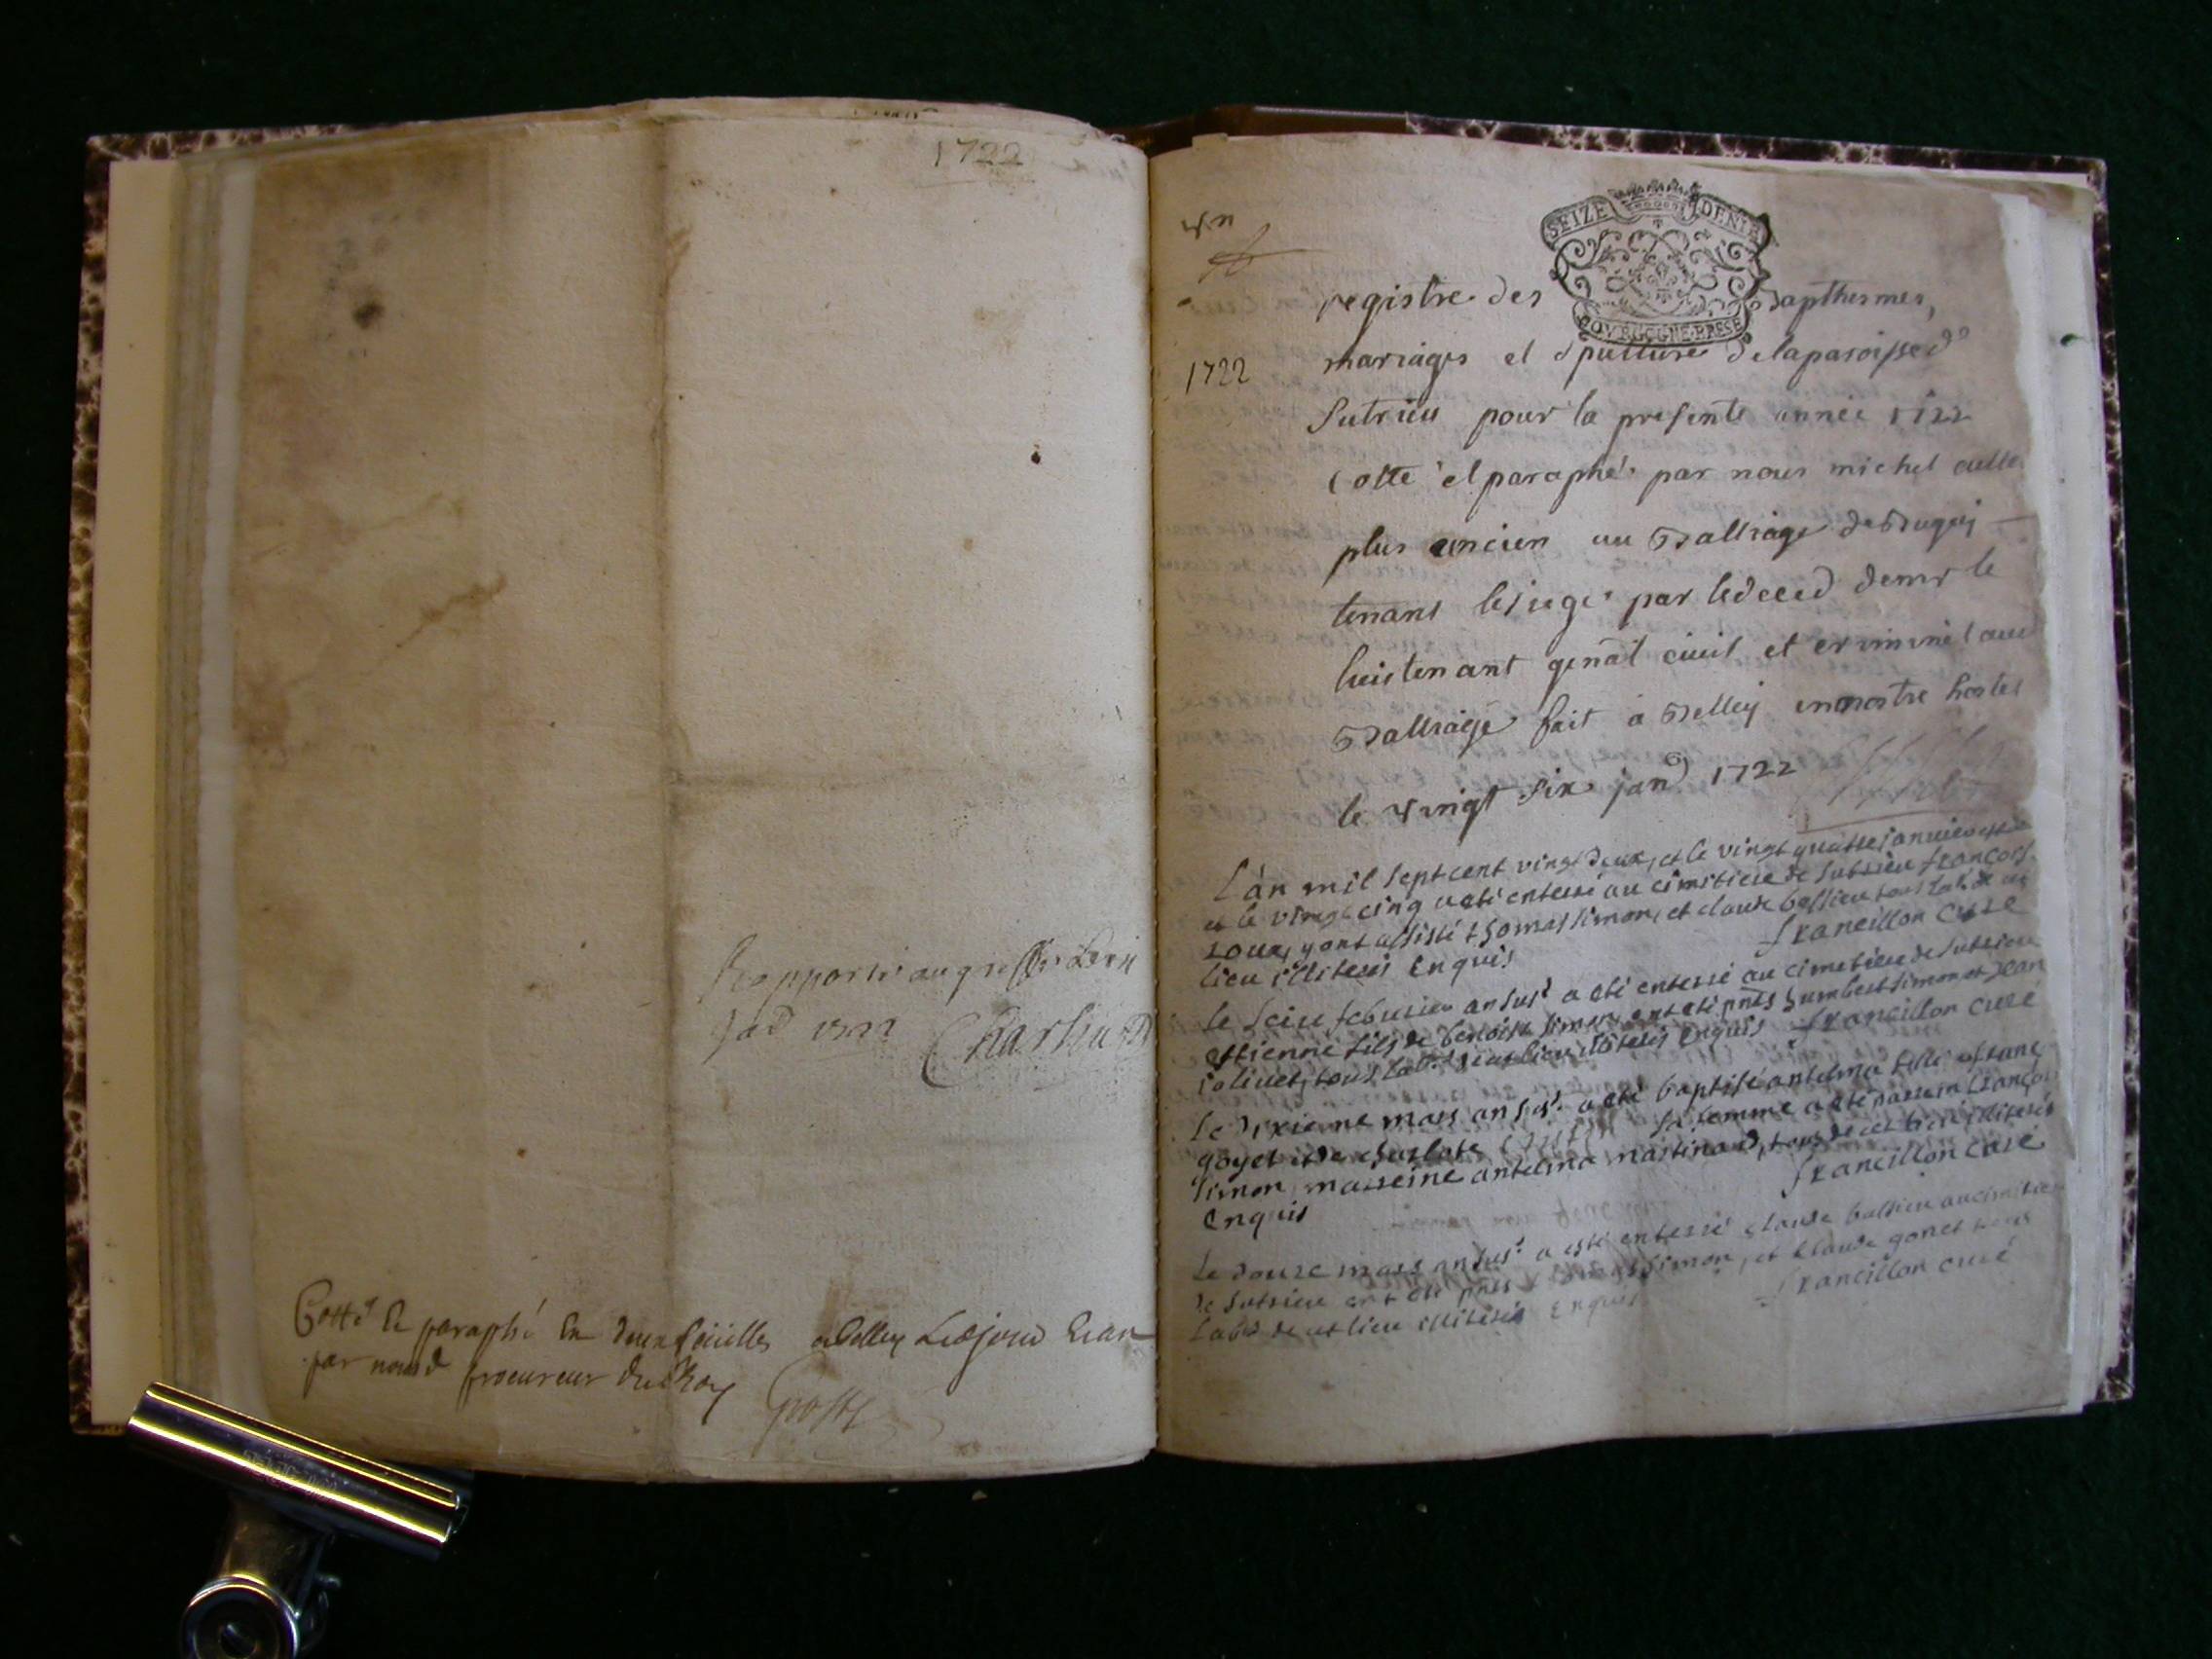 1722
Rapporté au greffe le
1722 Charlin
Cotté et paraphé en deux feuilles a Belley Led jour et an
par nous d procureur du Roy
un
SEIZE DENIE
BOVRGOGNE BRESE
registre des Bapthesmes,
1722
mariages et sepulture de la paroisse d
Sutrieu pour la presente année 1722
Cotte et paraphé par nous michel
plus ancien au Balliage de Bugey
tenant le siege par le deced de mr le
lieutenant genal civil et criminel aud
Balliage fait a Belley en nostre hostel
le vingt six janv 1722
L'an mil sept cent vingt deux, et le vingt quatre janvier
et le vingt cinq a eté enterré au cimitiere de sutrieu françois
roux, y ont assisté thomas simon, et claude ballieu tous lab. de ce
lieu illiterés Enquis francillon curé
le seize febvrier an sust a eté enterré au cimetiere de sutrieu
ettienne fils de benoist simon ont eté pnts humbert simon et Jean
jolivet, tous lab. de ce lieu illiterés Enquis francillon curé
Le dixieme mars an sust a eté baptisé antelma fille
goyet et de charlote sa femme a eté parrein françois
simon, marreine antelma martinand, tous de cet lieu illiterés
Enquis francillon curé
Le douze mars an sust a esté enterré claude ballieu au cimitier
de sutrieu ont eté pnts thomas simon, et claude gonet tous
labd de ce lieu illiterés Enquis francillon curé